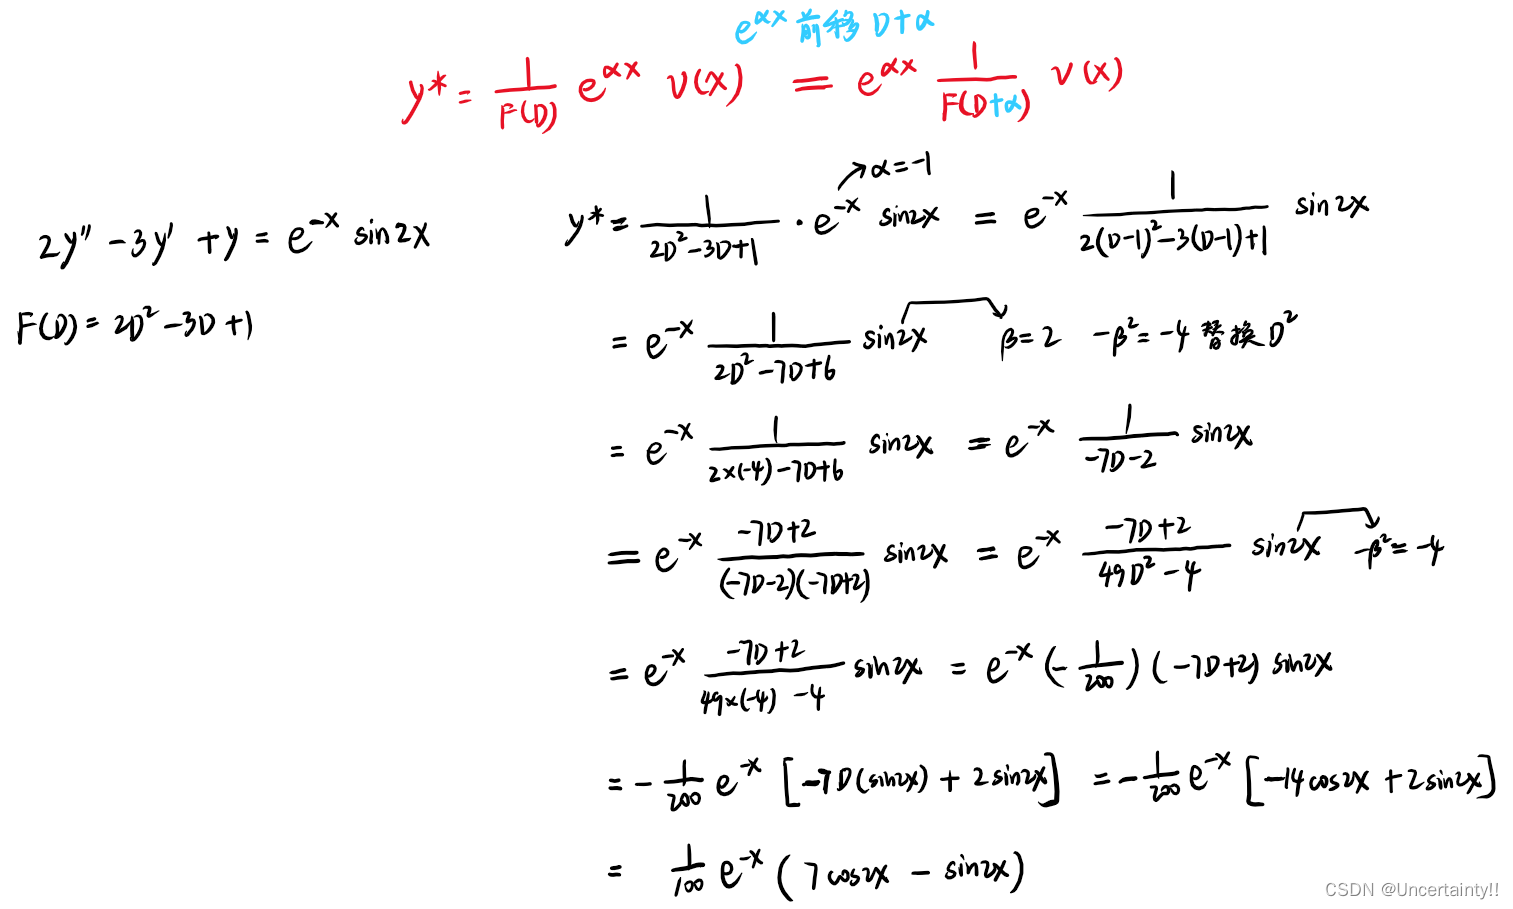 e^{αx} 前移 D+α
y* = \frac{1}{F(D)} e^{αx} v(x) = e^{αx} \frac{1}{F(D+α)} v(x)
→ α=-1
2y'' -3y' +y = e^{-x} sin2x
F(D) = 2D² -3D +1
y* = \frac{1}{2D²-3D+1} · e^{-x} sin2x = e^{-x} \frac{1}{2(D-1)²-3(D-1)+1} sin2x
= e^{-x} \frac{1}{2D²-7D+6} sin2x β=2 -β²=-4 替换 D²
= e^{-x} \frac{1}{2×(-4)-7D+6} sin2x = e^{-x} \frac{1}{-7D-2} sin2x
= e^{-x} \frac{-7D+2}{(-7D-2)(-7D+2)} sin2x = e^{-x} \frac{-7D+2}{49D²-4} sin2x -β²=-4
= e^{-x} \frac{-7D+2}{49×(-4) -4} sin2x = e^{-x} (-\frac{1}{200}) (-7D+2) sin2x
= -\frac{1}{200} e^{-x} [-7D(sin2x) + 2sin2x] = -\frac{1}{200} e^{-x} [-14cos2x + 2sin2x]
= \frac{1}{100} e^{-x} (7cos2x - sin2x)
CSDN @Uncertainty!!